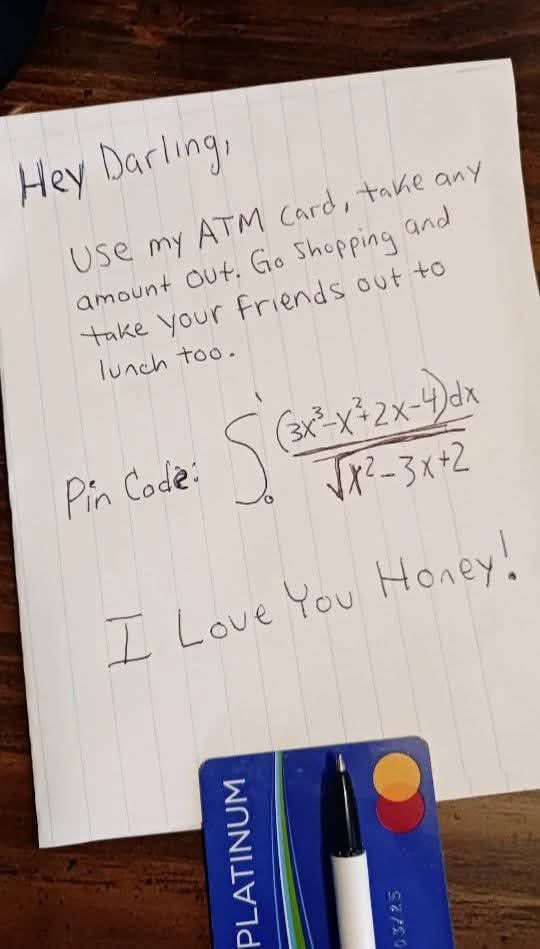 Hey Darling,
Use my ATM Card, take any
amount out. Go Shopping and
take your friends out to
lunch too.
Pin Code: ∫₀¹ (3x³-x²+2x-4)dx / √x²-3x+2
I Love You Honey!
PLATINUM
3/25